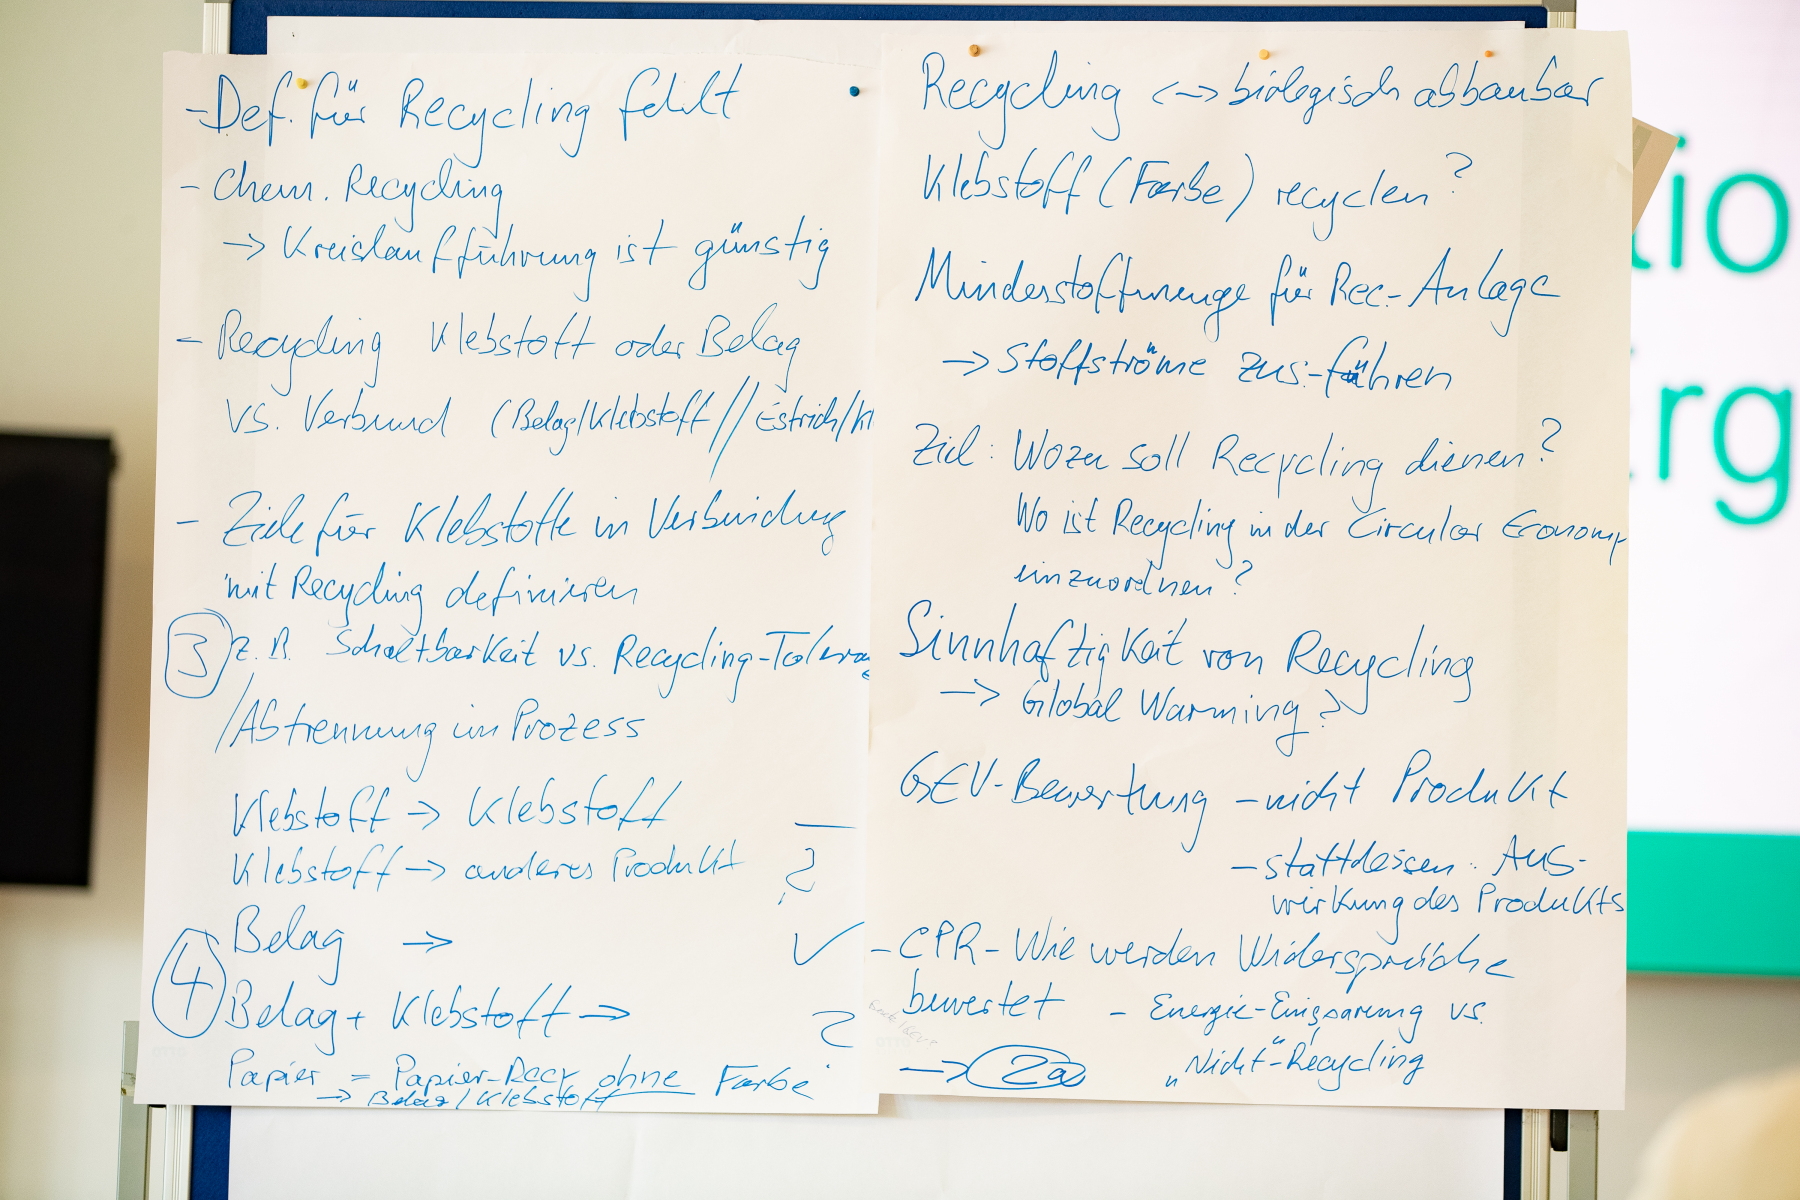 - Def. für Recycling fehlt
- Chem. Recycling
-> Kreislaufführung ist günstig
- Recycling Klebstoff oder Belag
vs. Verbund (Belag/Klebstoff // Estrich/Kl
- Ziele für Klebstoffe in Verbindung
mit Recycling definieren
3 z.B. Schaltbarkeit vs. Recycling-Toleranz
/Abtrennung im Prozess
Klebstoff -> Klebstoff –
Klebstoff -> anderes Produkt ?
Belag -> ✓
4 Belag + Klebstoff -> ?
Papier = Papier-Recy ohne Farbe
-> Belag/Klebstoff
Recycling <-> biologisch abbaubar
Klebstoff (Farbe) recyclen?
Mindestoffmenge für Rec-Anlage
-> Stoffströme zus.-führen
Ziel: Wozu soll Recycling dienen?
Wo ist Recycling in der Circular Economy
einzuordnen?
Sinnhaftigkeit von Recycling
-> Global Warming?
GEV-Bewertung - nicht Produkt
- stattdessen: Aus-
wirkung des Produkts
- CPR - Wie werden Widersprüche
bewertet - Energie-Einsparung vs.
"Nicht"-Recycling
-> 2a
tio
rg